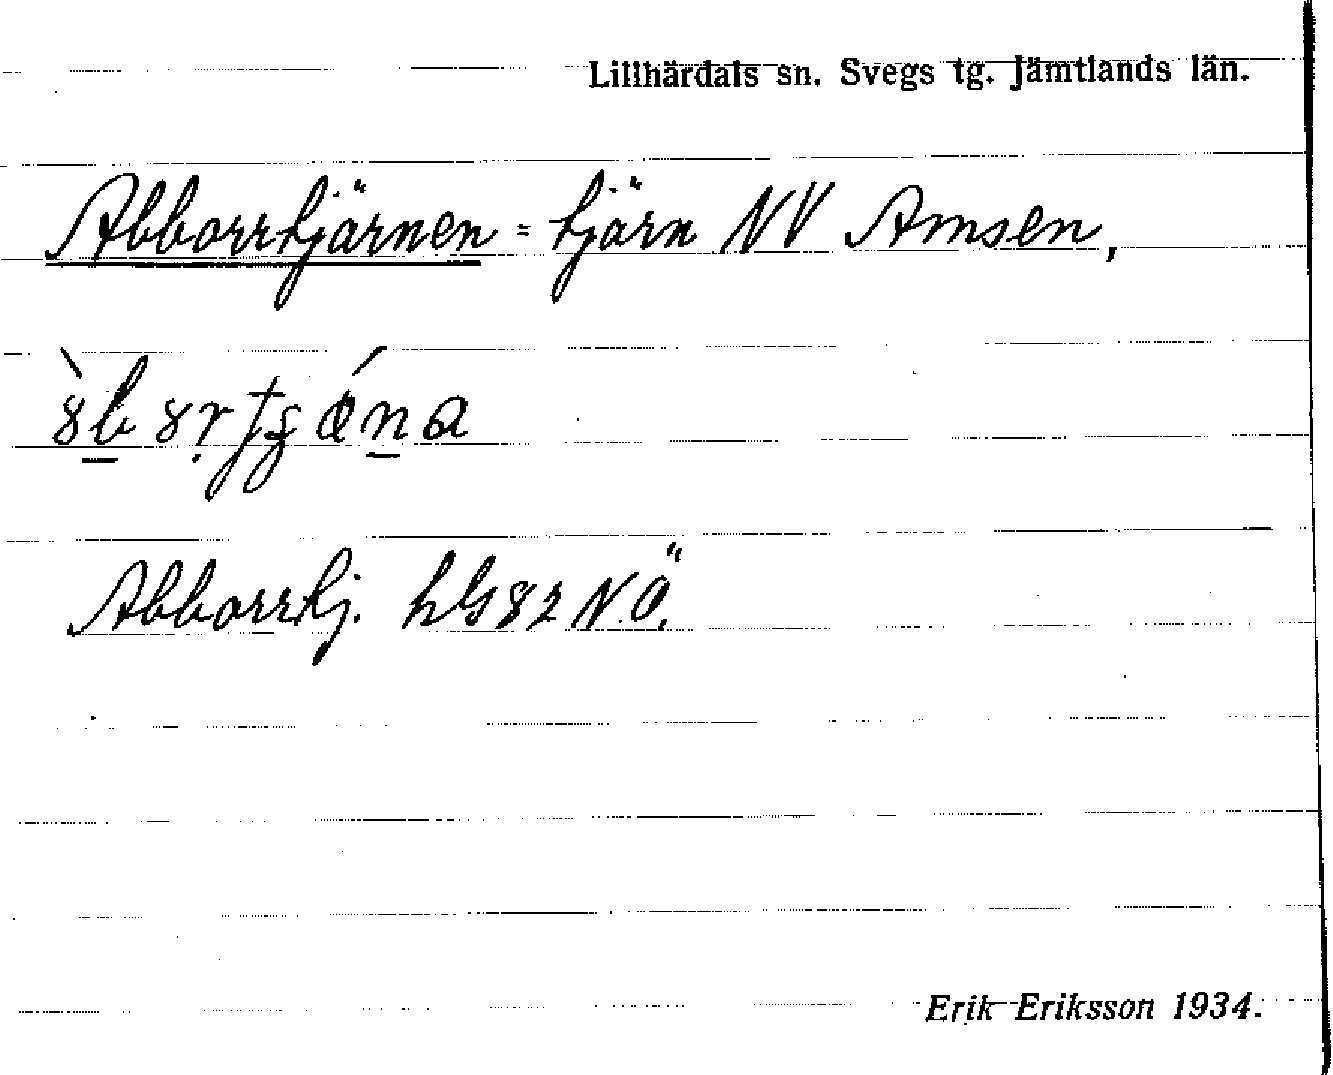 Lillhärdals sn. Svegs tg. Jämtlands län.
Abborrtjärnen = tjärn NV Amsen,
Abborrtj. hG82 N.Ö.
Erik Eriksson 1934.